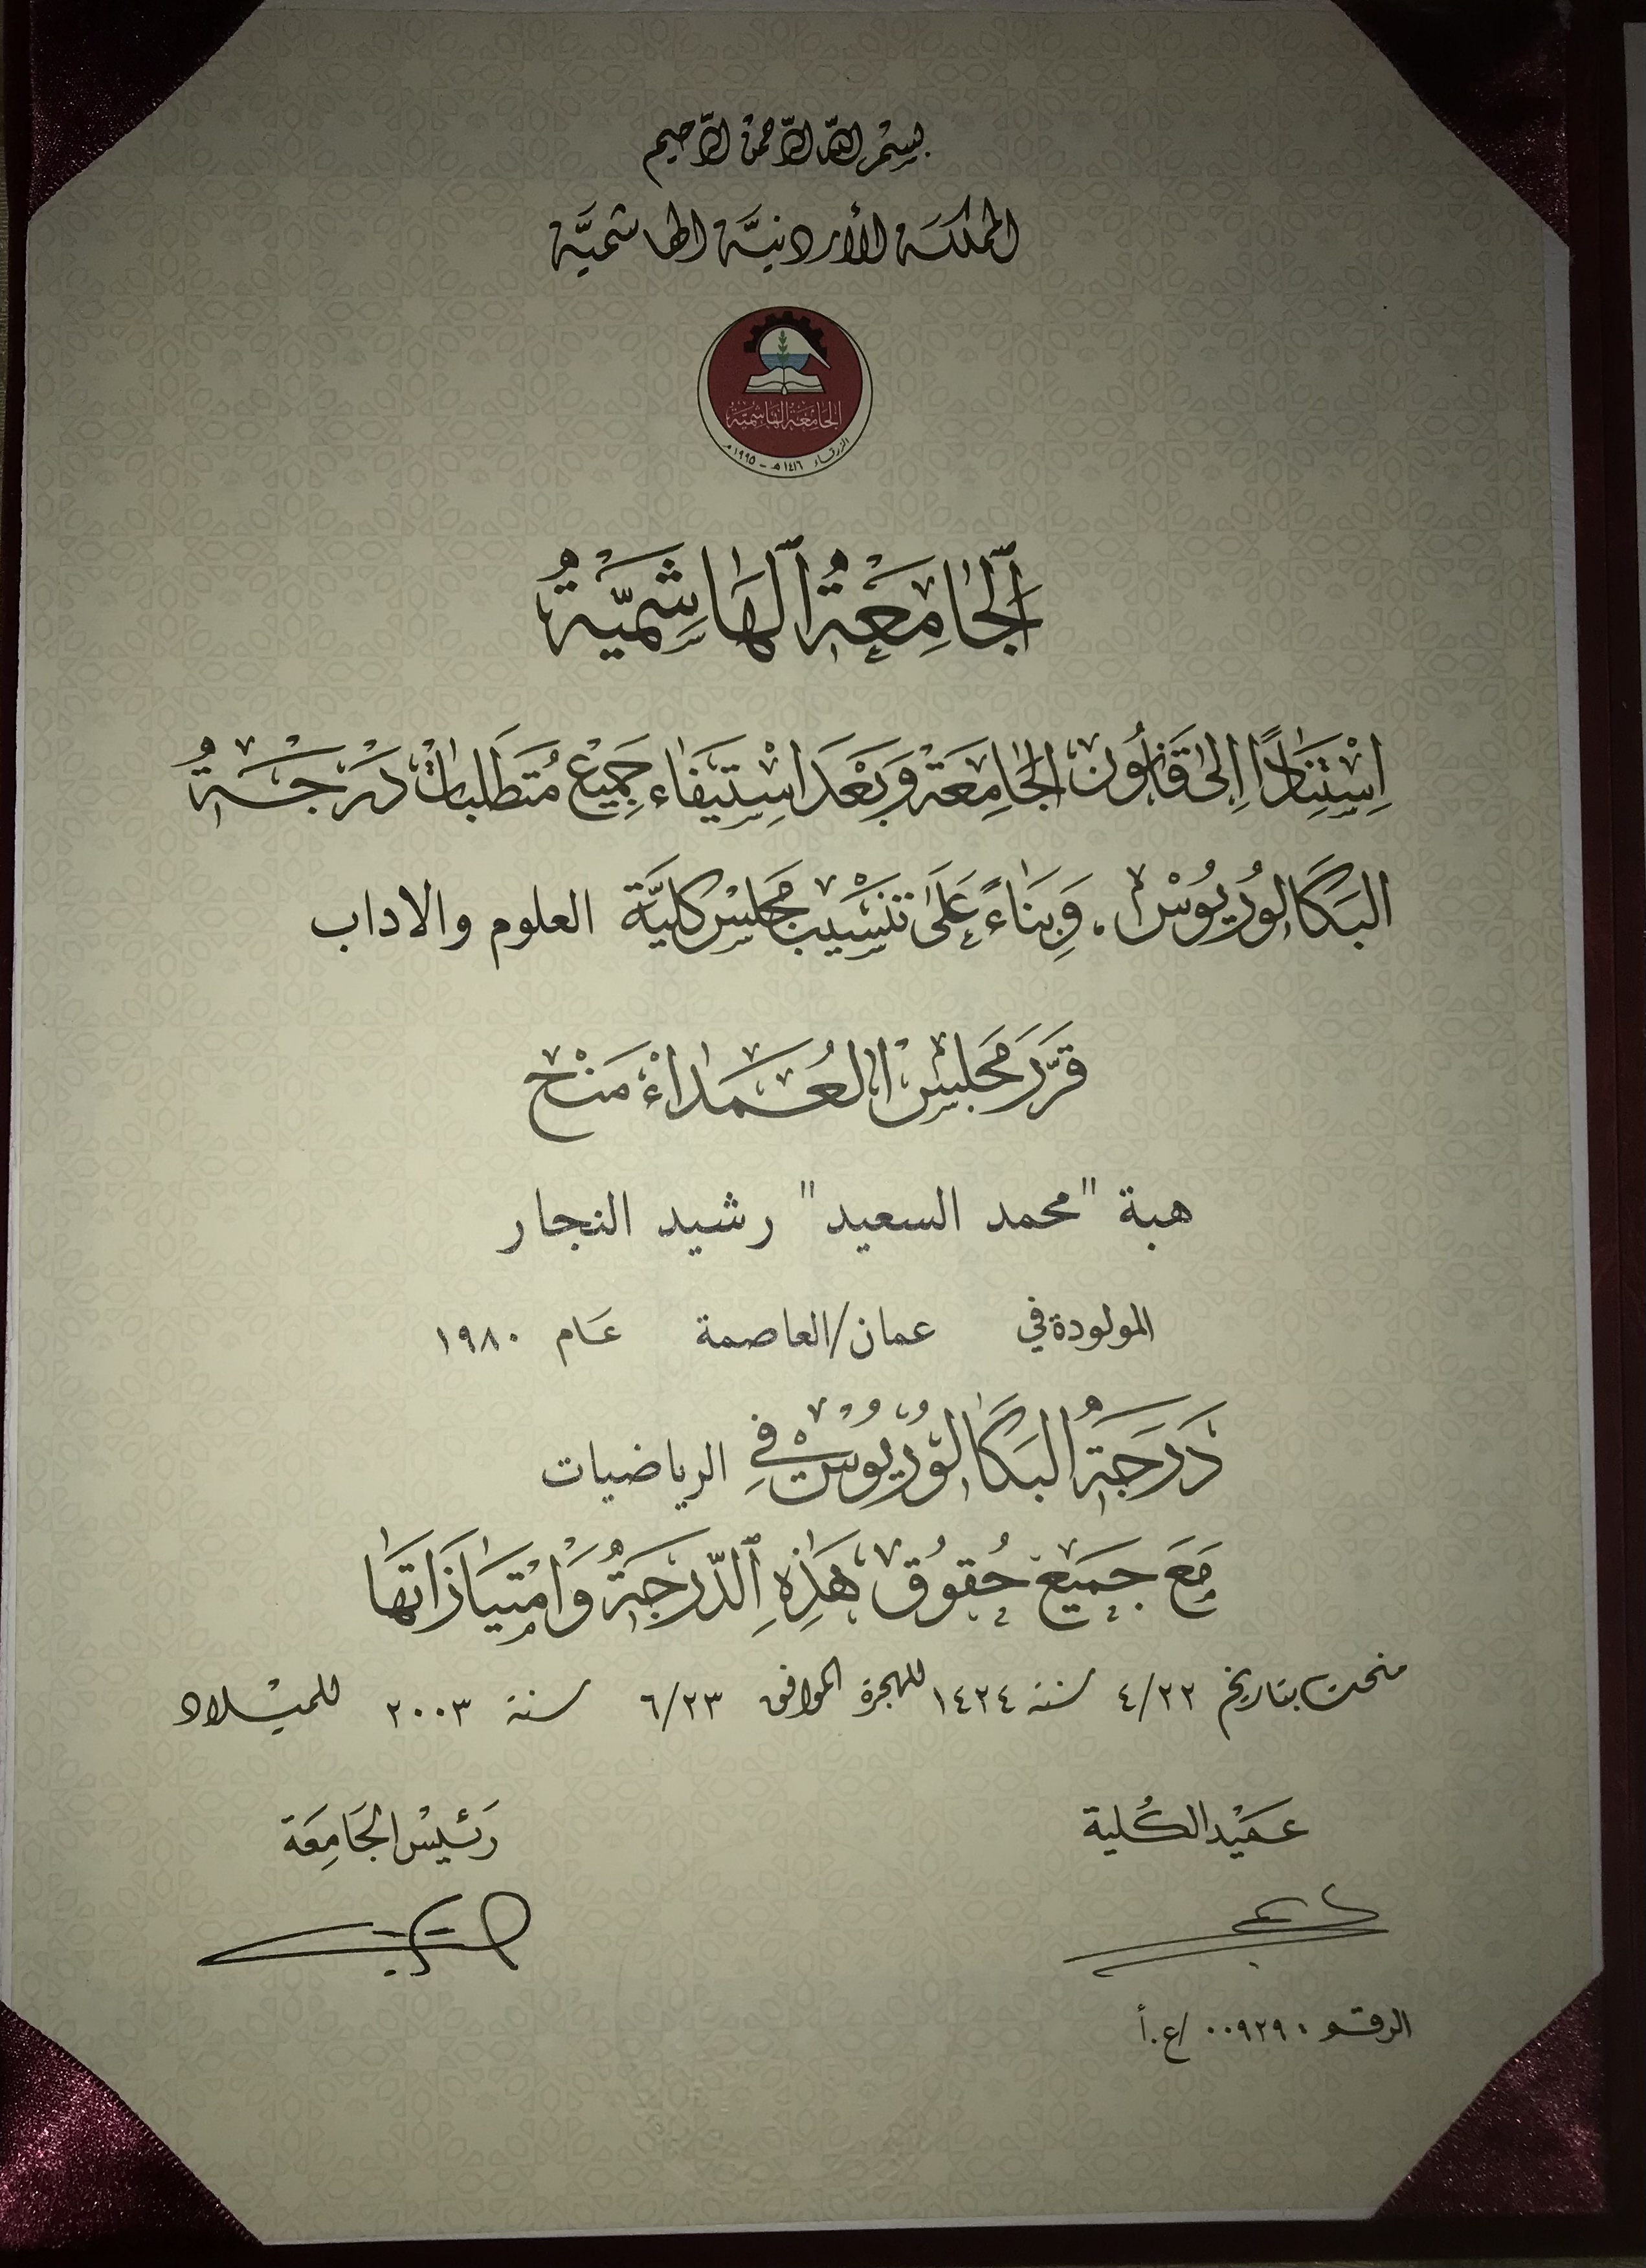 بسم الله الرحمن الرحيم
المملكة الأردنيَّة الهاشميَّة
الجامعة الهاشميّة
الزرقاء ١٤١٦هـ - ١٩٩٥م
ٱلْجَامِعَةُ ٱلْهَاشِمِيَّةُ
اِسْتِنَادًا اِلىٰ قَانُونِ الجَامِعَة وَبَعْدَ اسْتِيفَاء جَمِيْعِ مُتَطَلبَاتْ دَرَجَةُ
البَكَالُورُيُوسْ، وَبِنَاءً عَلىٰ تَنْسَيْب مَجْلِس كليَّة العلوم والاداب
قرَّرَ مَجلِسْ العُمَدَاءْ مَنْح
هبة "محمد السعيد" رشيد النجار
المولودة في عمان/العاصمة عَام ١٩٨٠
دَرَجَةُ البَكَالوُرُيُوسْ فيِ الرياضيات
مَعَ جَميْعْ حُقوُق هَذِهِ ٱلدّرجَةُ وَامْتيَازَاتهَا
منحت بتاريخ ٤/٢٢ سنة ١٤٢٤ للهجرة الموافق ٦/٢٣ سنة ٢٠٠٣ للميْلاد
عَميْد الكُلية
رَئيسْ الجَامِعَة
الرقم : ٠٠٩٢٩ /ع.أ